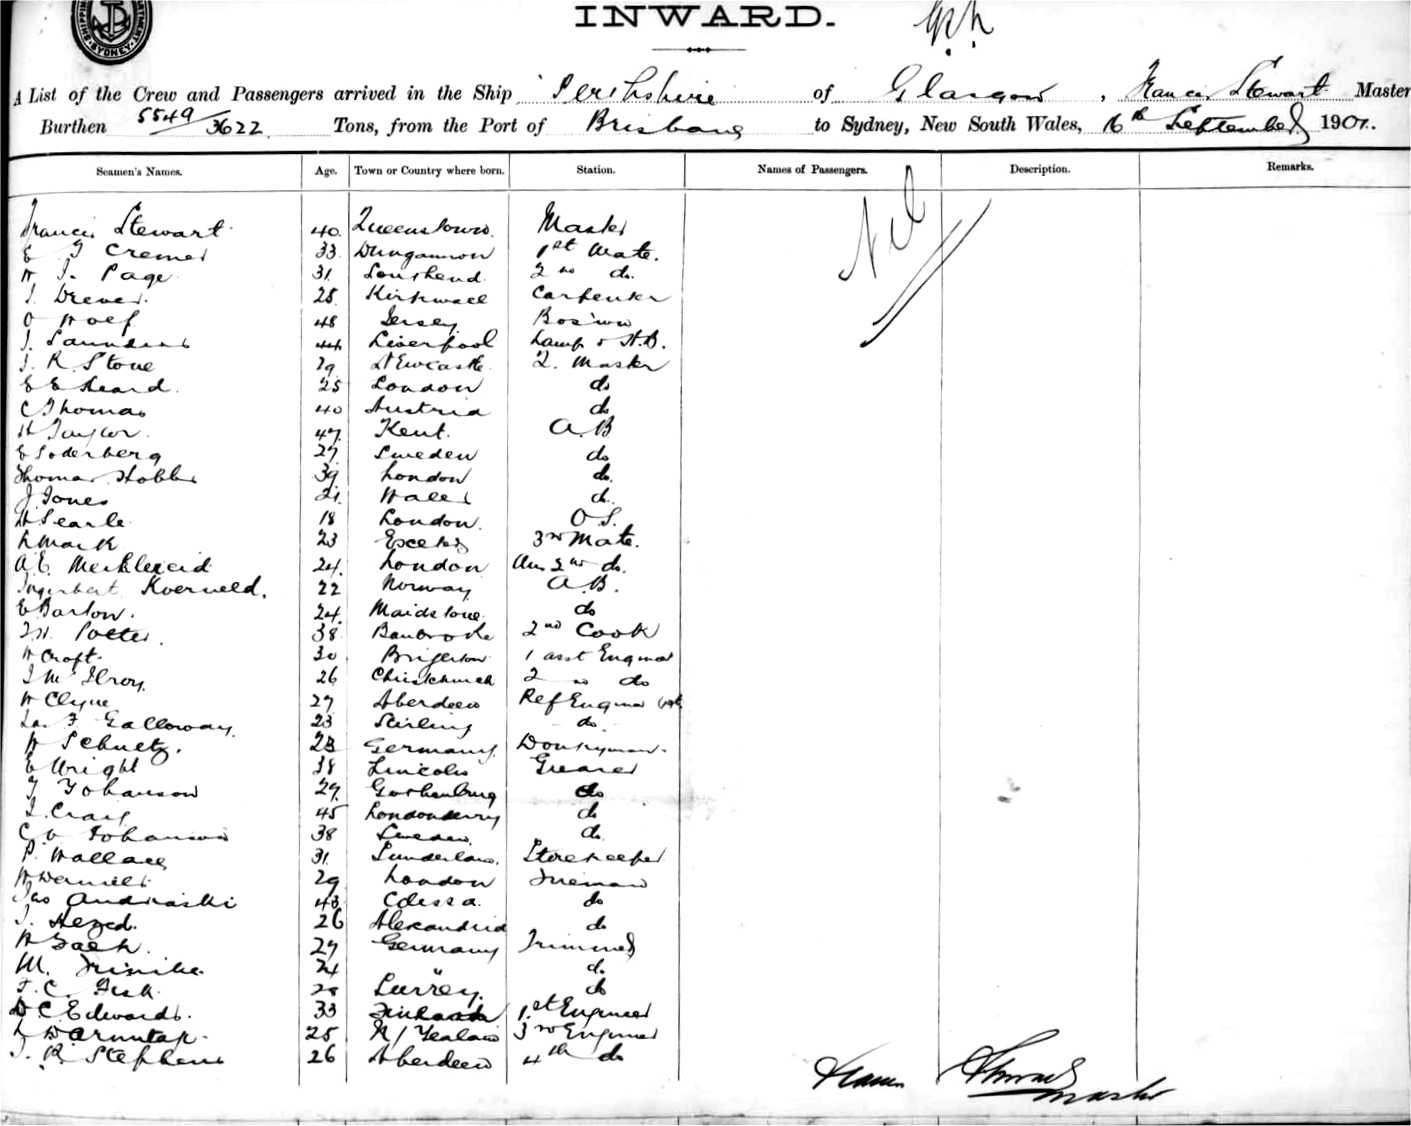 INWARD.
A List of the Crew and Passengers arrived in the Ship Perthshire of Glasgow, Francis Stewart Master
Burthen 5549/3622 Tons, from the Port of Brisbane to Sydney, New South Wales, 16th September 1901.
Seamen's Names. Age. Town or Country where born. Station. Names of Passengers. Description. Remarks.
Francis Stewart 40 Queenstown Master Nil
E J Cremer 33 Dungannon 1st Mate.
W J. Page 31 Southend 2nd do.
J. Drever. 28 Kirkwall Carpenter
O Wolf 48 Jersey Bos'wn
J. Saunders 44 Liverpool Lamp & A.B.
J. R. Stone 29 Newcastle Q. Master
E E Heard. 25 London do
C Thomas 40 Austria do
H Taylor. 47 Kent. A.B
E Soderberg 27 Sweden do
Thomas Hobbs 39 London do.
J Jones 21 Wales do.
W Searle 18 London. O.S.
L Mack 23 Exeter 3rd Mate.
A.E. 24. London 2nd do.
Koerneld. 22 Norway A.B.
E Barton. 24. Maidstone do
Potter. 38 2nd Cook
W Croft. 30 1 asst Engineer
J McIlroy. 26 Christchurch 2 do
W Clyne 27 Aberdeen Ref Engineer
Jas F Galloway. 23 Stirling do.
W Schuetz. 28 Germany. Donkeyman.
E Wright 38 Lincoln Greaser
J Johanson 29. Gothenburg do
J. Craig 45 Londonderry do
C. O Johanson 38 Sweden. do.
P. Wallace 31. Sunderland. Storekeeper
W Daniels 29 London Fireman
Jas Andriaski 43 Odessa. do
J. 26 Alexandria do
W 27 Germany Trimmer
M. 24 " do.
F. C. Fisk. 28 Surrey. do
D C Edwards. 33 1st Engineer
L 25 N/ Zealand 3rd Engineer
J. R. Stephens 26 Aberdeen 4th do
Francis Stewart
Master